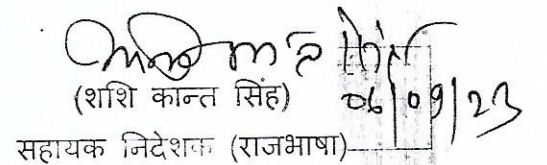 (शशि कान्त सिंह)
06/09/23
सहायक निदेशक (राजभाषा)